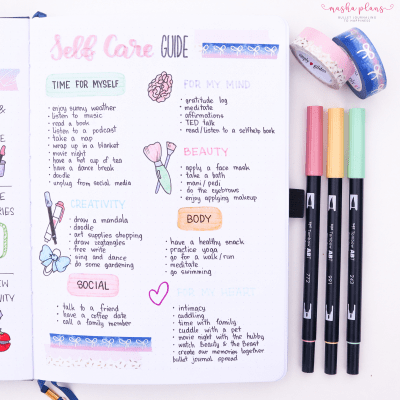 masha plans
BULLET JOURNALING
TO HAPPINESS
Self Care GUIDE
TIME FOR MYSELF
enjoy sunny weather
listen to music
read a book
listen to a podcast
take a nap
wrap up in a blanket
movie night
have a hot cup of tea
have a dance break
doodle
unplug from social media
CREATIVITY
draw a mandala
doodle
art supplies shopping
draw zentangles
free write
sing and dance
do some gardening
SOCIAL
talk to a friend
have a coffee date
call a family member
FOR MY MIND
gratitude log
meditate
affirmations
TED talk
read/listen to a selfhelp book
BEAUTY
apply a face mask
take a bath
mani/pedi
do the eyebrows
enjoy applying makeup
BODY
have a healthy snack
practice yoga
go for a walk/run
meditate
go swimming
FOR MY HEART
intimacy
cuddling
time with family
cuddle with a pet
movie night with the hubby
watch Beauty & the Beast
create our memories together
bullet journal spread
772
991
243